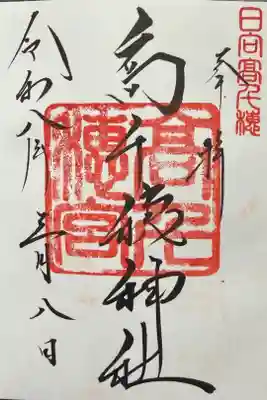 日向高千穂
奉拝
高千穂神社
高千穂宮
令和八年三月八日